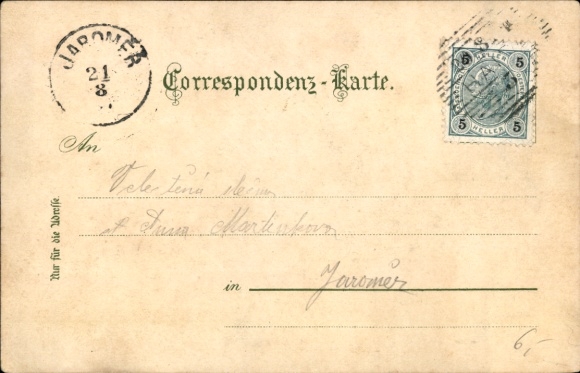 JAROMĚŘ
21
8
Correspondenz-Karte.
5 5
HELLER
5 5
An
Velectěná slečna
Anna Martinkova
Nur für die Adresse.
in Jaroměř
6,-